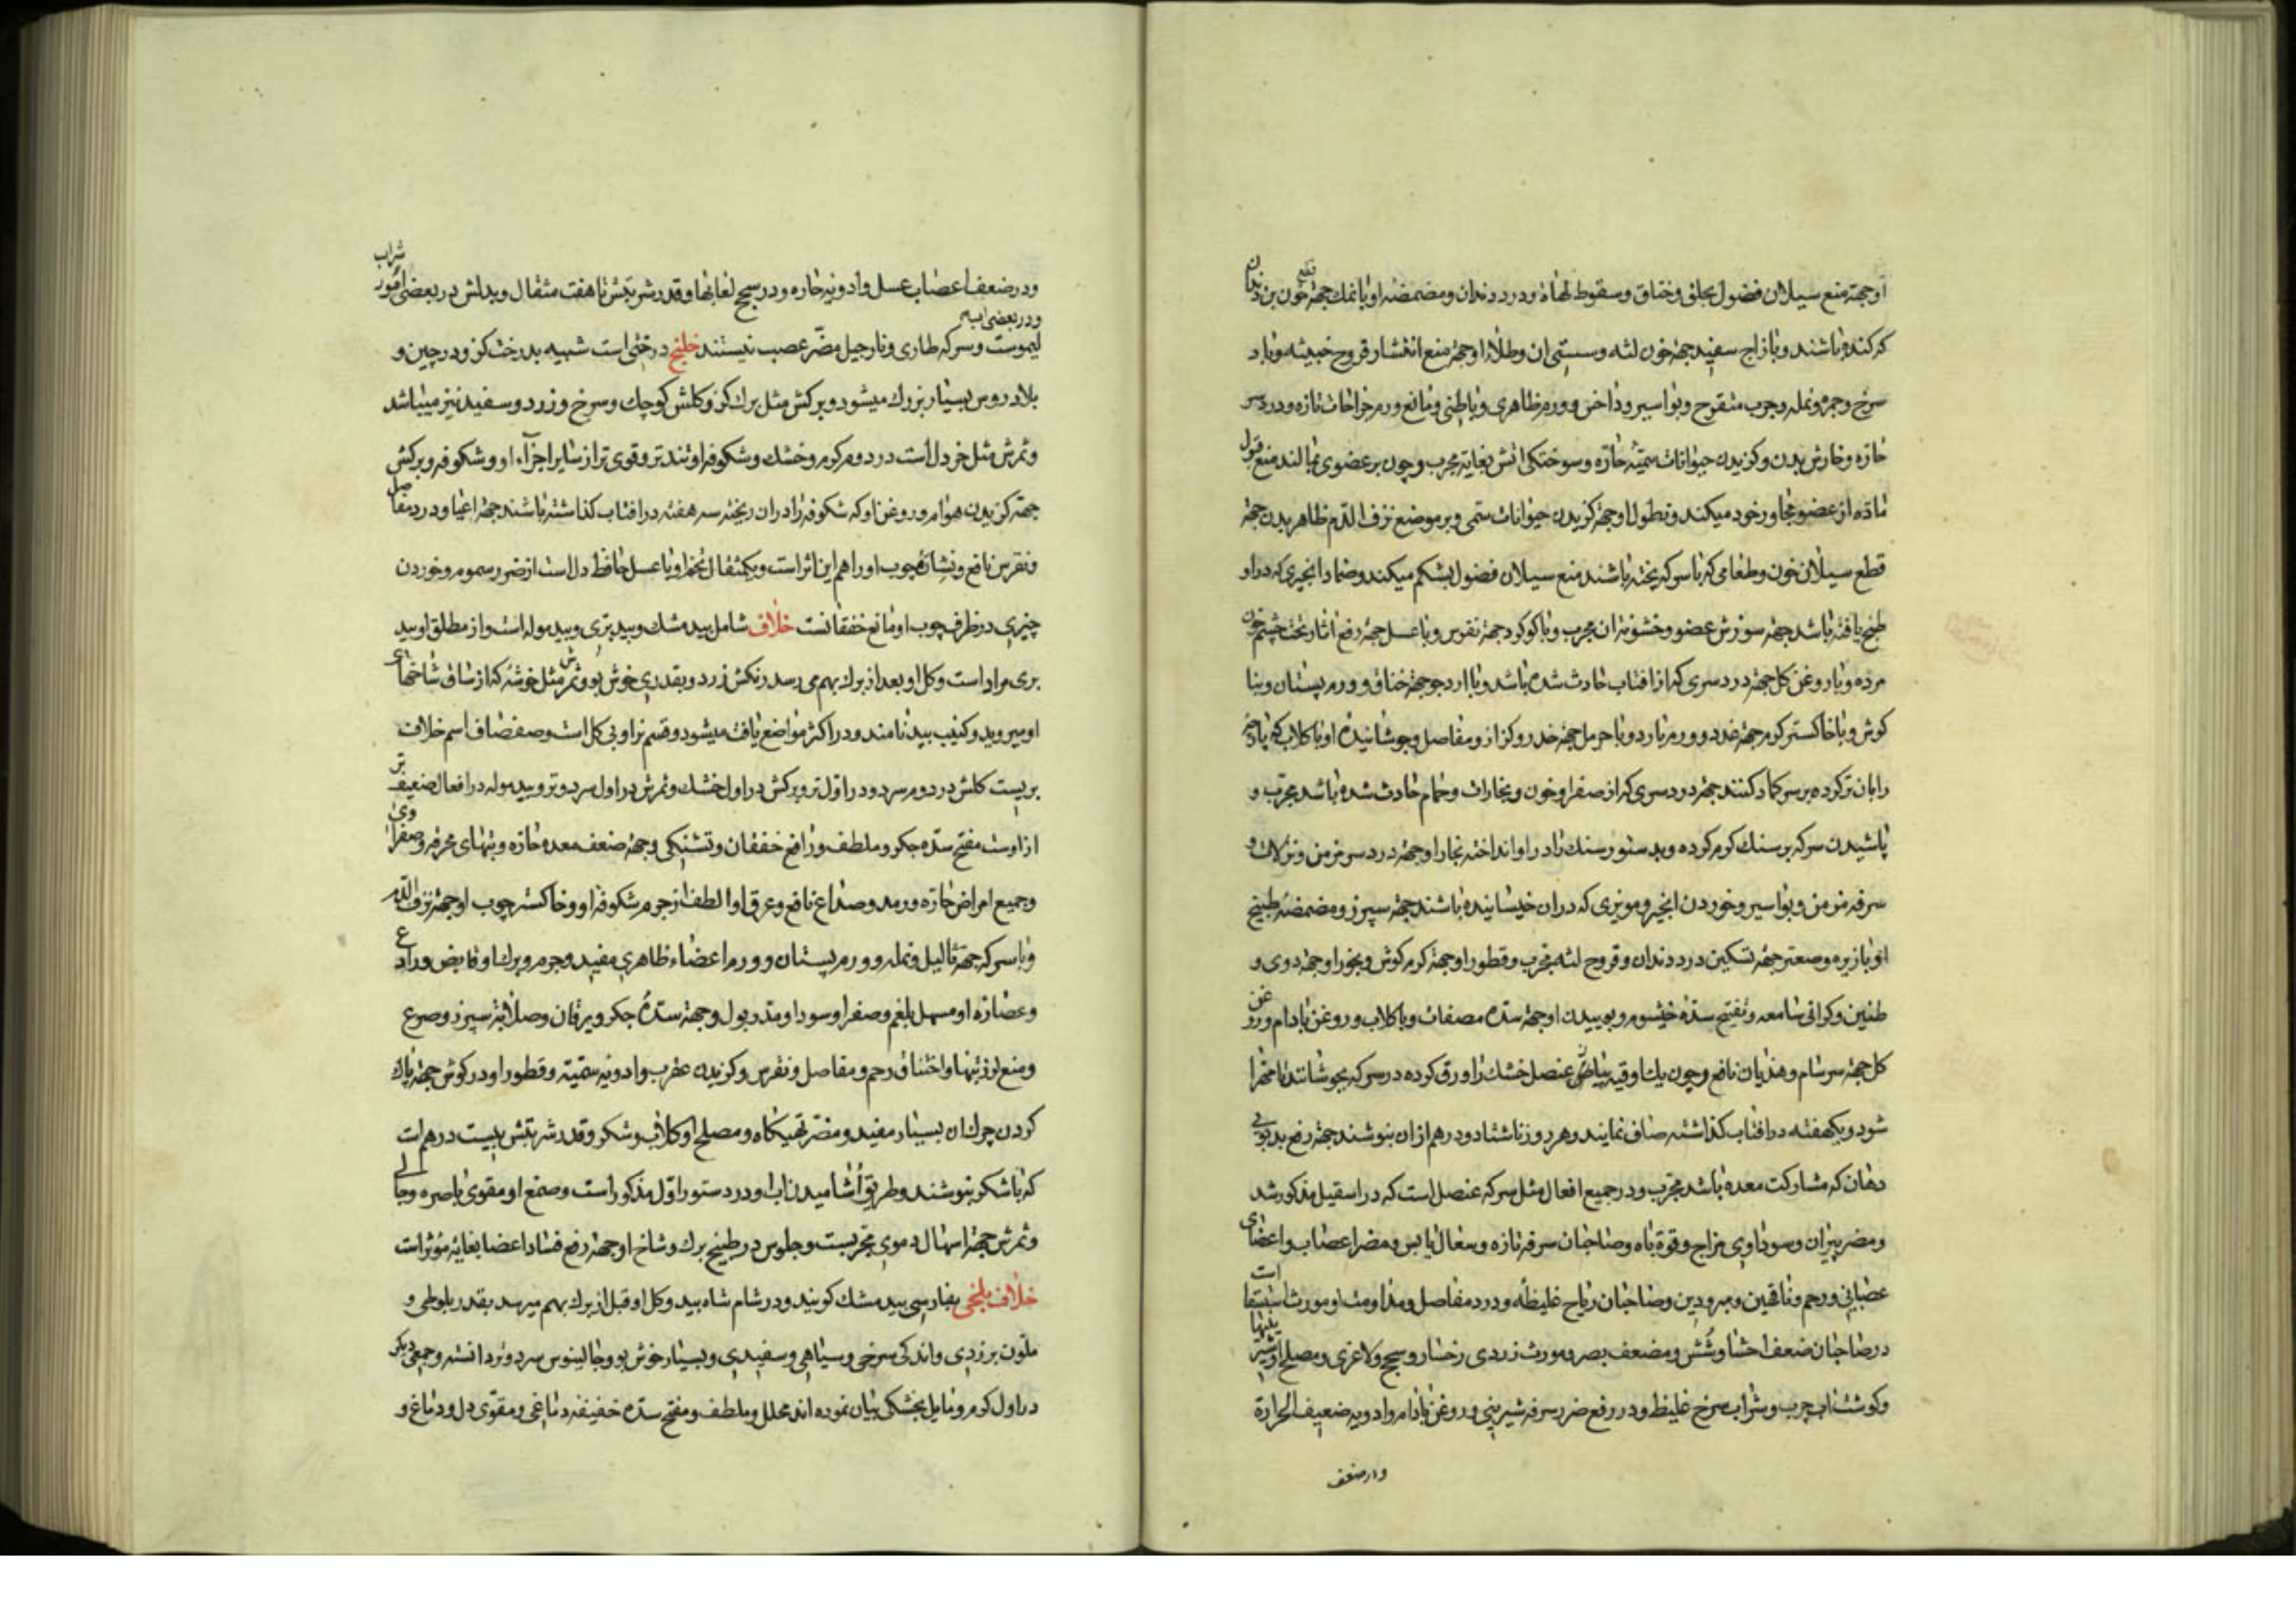 او جهة منع سیلان فضول بحلق و خناق و سقوط لهاة و درد دندان و مضمضهٔ او با نمك جهة خون بن دندان
که کنده باشند و با زاج سفید جهة خون لثه و سستی ان و طلاء او جهة منع انتشار قروح خبیثه و باد
سرخ و جمره و نمله و جرب متقرح و بواسیر و داخس و ورم ظاهری و باطنی و مانع ورم جراحات تازه و درد سر
حاره و خارش بدن و کزیدن حیوانات سمّیّه حارّه و سوختکی اتش بغایة مجرب و چون بر عضوی بمالند منع قبول
مادّه از عضو مجاور خود میکند و نطول او جهة کزیدن حیوانات سمی و بر موضع نزف الدم ظاهر بدن جهة
قطع سیلان خون و طعامی که با سرکه پخته باشند منع سیلان فضول بشکم میکند و ضماد انجیری که در او
طبخ یافته باشد جهة سوزش عضو و خشونة ان مجرب و با کوکرد جهة نقرس و با عسل جهة رفع اثار تحت چشم خون
مرده و با روغن کل جهة درد سری که از افتاب حادث شده باشد و با ارد جو جهة خناق و ورم پستان و بنا
کوش و با خاکستر کرم جهة غدد و ورم بارد و با حرمل جهة خدر و کزاز و مفاصل و جوشانیدهٔ او با کلاب که پارچه
را بان تر کرده بر سر کماد کنند جهة درد سری که از صفرا و خون و بخارات و حمام حادث شده باشد مجرب و
پاشیدن سرکه بر سنك کرم کرده و بدستور سنك را در او انداخته بخار او جهة درد سر مزمن و نزلات و
سرفه مزمن و بواسیر و خوردن انجیر و مویزی که در ان خیسانیده باشند جهة سپرز و مضمضهٔ طبیخ
او با زیره و صعتر جهة تسکین درد دندان و قروح لثه مجرب و قطور او جهة کرم کوش و بخور او جهة دوی و
طنین و کرانی سامعه و تفتیح سدّهٔ خیشوم و بوییدن او جهة سدهٔ مصفات و با کلاب و روغن بادام و روغن
کل جهة سرسام و هذیان نافع و چون یك اوقیه بیاض عنصل خشك را ورق کرده در سرکه بجوشانند تا مهرا
شود و یکهفته در افتاب کذاشته صاف نمایند و هر روز ناشتا دو درهم ازان بنوشند جهة رفع بد بویی
دهان که مشارکت معده باشد مجرب و در جمیع افعال مثل سرکه عنصل است که در اسقیل مذکور شد
و مضر پیران و سوداوی مزاج و قوة باه و صاحبان سرفه تازه و سعال یابس و مضر اعصاب و اعضای
عصبانی و رحم و ناقهین و مبرودین و صاحبان ریاح غلیظه و درد مفاصل و مداومت او مورث استسقا است
در صاحبان ضعف احشا و شش و مضعف بصر و مورث زردی رخسار و سحج و لاغری و مصلح او شیرینیها
و کوشتاب چرب و شراب سرخ غلیظ و در رفع ضرر سرفه شیرینی و روغن بادام و ادویه ضعیف الحرارة
و در ضعف
و در ضعف اعصاب عسل و ادویه حاره و در سحج لعابها و قدر شربتش تا هفت مثقال و بدلش در بعضی امور شراب
و در بعضی اب
لیموست و سرکه طاری و نارجیل مضرّ عصب نیستند خلنج درختی است شبیه بدرخت کز و در چین و
بلاد روس بسیار بزرك میشود و برکش مثل برك کز و کلش کوچك و سرخ و زرد و سفید نیز میباشد
و ثمرش مثل خردل است در دوم کرم و خشك و شکوفه او تند تر و قوی تر از سایر اجزآء او و شکوفه و برکش
جهة کزیدن هوام و روغن او که شکوفه را در ان ریخته سه هفته در افتاب کذاشته باشند جهة اعیا و درد مفاصل
و نقرس نافع و نشارهٔ چوب او را هم این اثر است و یکمثقال تخم او با عسل حافظ دل است از ضرر سموم و خوردن
چیزی در ظرف چوب او مانع خفقانست خلاف شامل بید مشك و بید بری و بید موله است و از مطلق او بید
بری مراد است و کل او بعد از برك بهم می رسد رنکش زرد و بقدری خوش بو و ثمرش مثل خوشه که از ساق شاخهای
او میروید و کنیب بید نامند و در اکثر مواضع یافت میشود و قسم نر او بی کل است و صفصاف اسم خلاف
بریست کلش در دوم سرد و در اوّل تر و برکش در اول خشك و ثمرش در اول سرد و تر و بید موله در افعال ضعیف تر
از اوست مفتح سدّه جکر و ملطف و رافع خفقان و تشنکی و جهة ضعف معده حاره و تبهای محرقه و صفراوی
و جمیع امراض حاره و رمد و صداع نافع و عرق او الطف از جرم شکوفه او و خاکستر چوب او جهة نزف الدم
و با سرکه جهة ثالیل و نمله و ورم پستان و ورم اعضاء ظاهری مفید و جرم و برك او قابض و رادع
و عصاره او مسهل بلغم و صفرا و سودا و مدر بول و جهة سدّهٔ جکر و یرقان و صلابة سپرز و صرع
و منع لرز تبها و اختناق رحم و مفاصل و نقرس و کزیدن عقرب و ادویه سمّیّه و قطور او در کوش جهة پاك
کردن چرك ان بسیار مفید و مضر تهیکاه و مصلح او کلاب و شکر و قدر شربتش بیست درهم است
که با شکر بنوشند و طریق اشامیدن اب او در دستور اوّل مذکور است و صمغ او مقوی باصره و جالی
و ثمرش جهة اسهال دموی مجربست و جلوس در طبیخ برك و شاخ او جهة رفع فساد اعضا بغایه مؤثر است
خلاف بلخی بفارسی بید مشك کویند و در شام شاه بید و کل او قبل از برك بهم میرسد بقدر بلوطی و
ملون بزردی و اندکی سرخی و سیاهی و سفیدی و بسیار خوش بو و جالینوس سرد و تر دانسته و جمعی دیکر
در اول کرم و مایل بخشکی بیان نموده اند محلل و ملطف و مفتح سدهٔ خفیفه دماغی و مقوّی دل و دماغ و